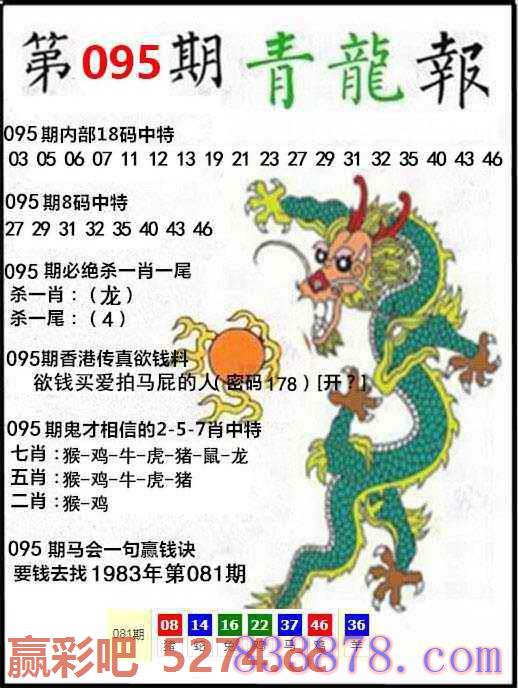 第095期 青龍報
095期内部18码中特
03 05 06 07 11 12 13 19 21 23 27 29 31 32 35 40 43 46
095期8码中特
27 29 31 32 35 40 43 46
095 期必绝杀一肖一尾
杀一肖：（龙）
杀一尾：（4）
095期香港传真欲钱料
欲钱买爱拍马屁的人（密码178）[开？]
095期鬼才相信的2-5-7肖中特
七肖：猴-鸡-牛-虎-猪-鼠-龙
五肖：猴-鸡-牛-虎-猪
二肖：猴-鸡
095期马会一句赢钱诀
要钱去找1983年第081期
081期 08 14 16 22 37 46 36
赢彩吧 5274.cc
838878.com